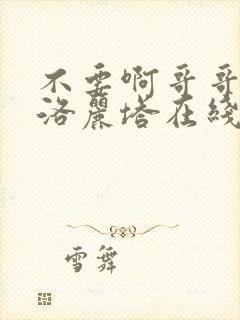 不要啊哥哥
洛麗塔在綫
雪舞